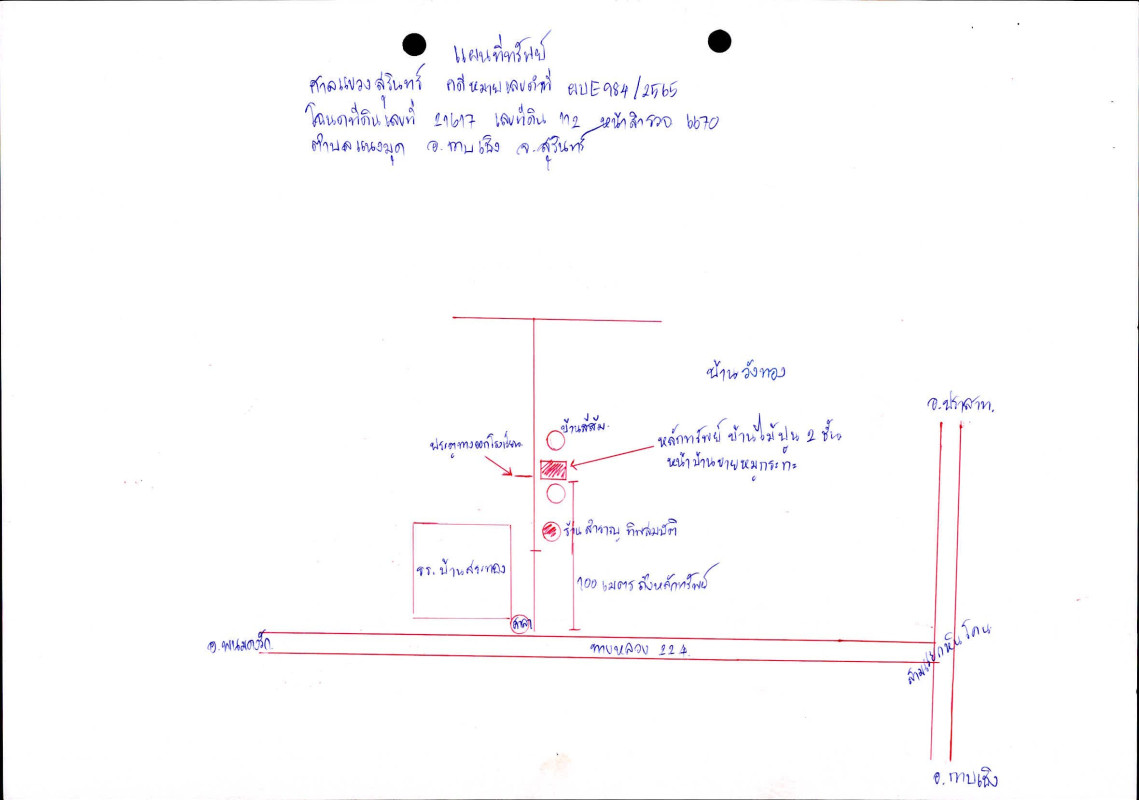 แผนที่ทรัพย์
ศาลแขวงสุรินทร์ คดีหมายเลขดำที่ ผบE984/2565
โฉนดที่ดินเลขที่ 21617 เลขที่ดิน 112 หน้าสำรวจ 6670
ตำบลแนงมุด อ.กาบเชิง จ.สุรินทร์
บ้านวังทอง
อ.ปราสาท.
บ้านสีส้ม.
ประตูทางออกโรงเรียน
หลักทรัพย์ บ้านไม้ปูน 2 ชั้น
หน้าบ้านขายหมูกระทะ
ร้านสำราญ ทิพสมบัติ
รร. บ้านสระทอง
100 เมตร ถึงหลักทรัพย์
ศาลา
อ.พนมดงรัก.
ทางหลวง 224
สามแยกหินโคน
อ.กาบเชิง